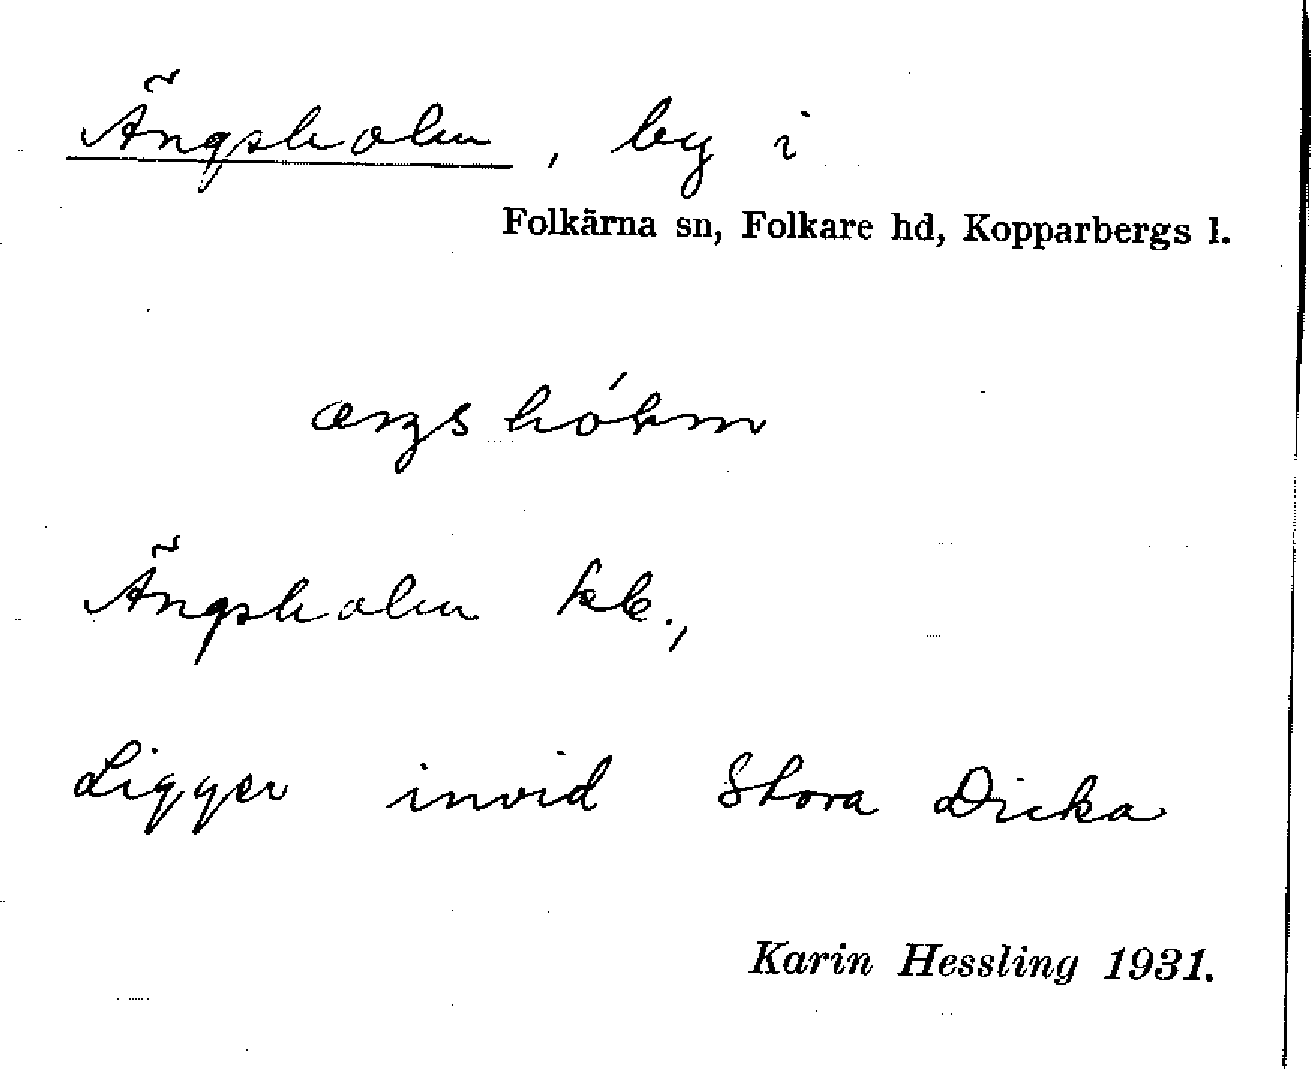 Ängsholm, by i
Folkärna sn, Folkare hd, Kopparbergs l.
Ängsholm kk.,
Ligger invid Stora Dicka
Karin Hessling 1931.